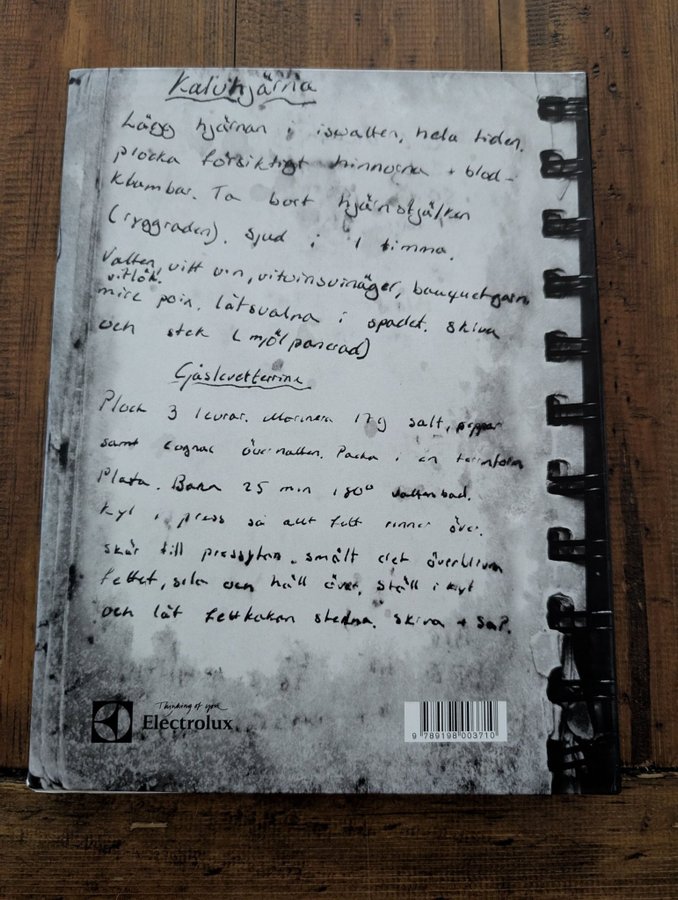 Kalvhjärna
Lägg hjärnan i isvatten, hela tiden.
plocka försiktigt hinnorna + blod-
klumbar. Ta bort hjärnstjälken
(ryggraden). Sjud i 1 timma.
Vatten, vitt vin, vitvinsvinäger, bouquetgarni
vitlök.
mire poix. låt svalna i spadet. skiva
och stek (mjölpanerad)
Gåsleverterrine
Plock 3 levrar. Marinera 17g salt, peppar
samt cognac övernatten. Packa i en terrinform
Plasta. Baka 25 min 180° vattenbad.
kyl i press så allt fett rinner över.
skär till pressytan. smält det överblivna
fettet, sila och häll över, ställ i kyl
och låt fettkakan stelna. skiva +
Thinking of you
Electrolux
9 789198 003710